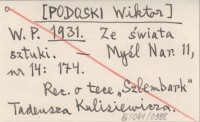 [PODOSKI Wiktor]
W. P. 1931. Ze świata
sztuki. — Myśl Nar. 11,
nr 14: 174.
Rec. o tece „Szlembark"
Tadeusza Kulisiewicza.